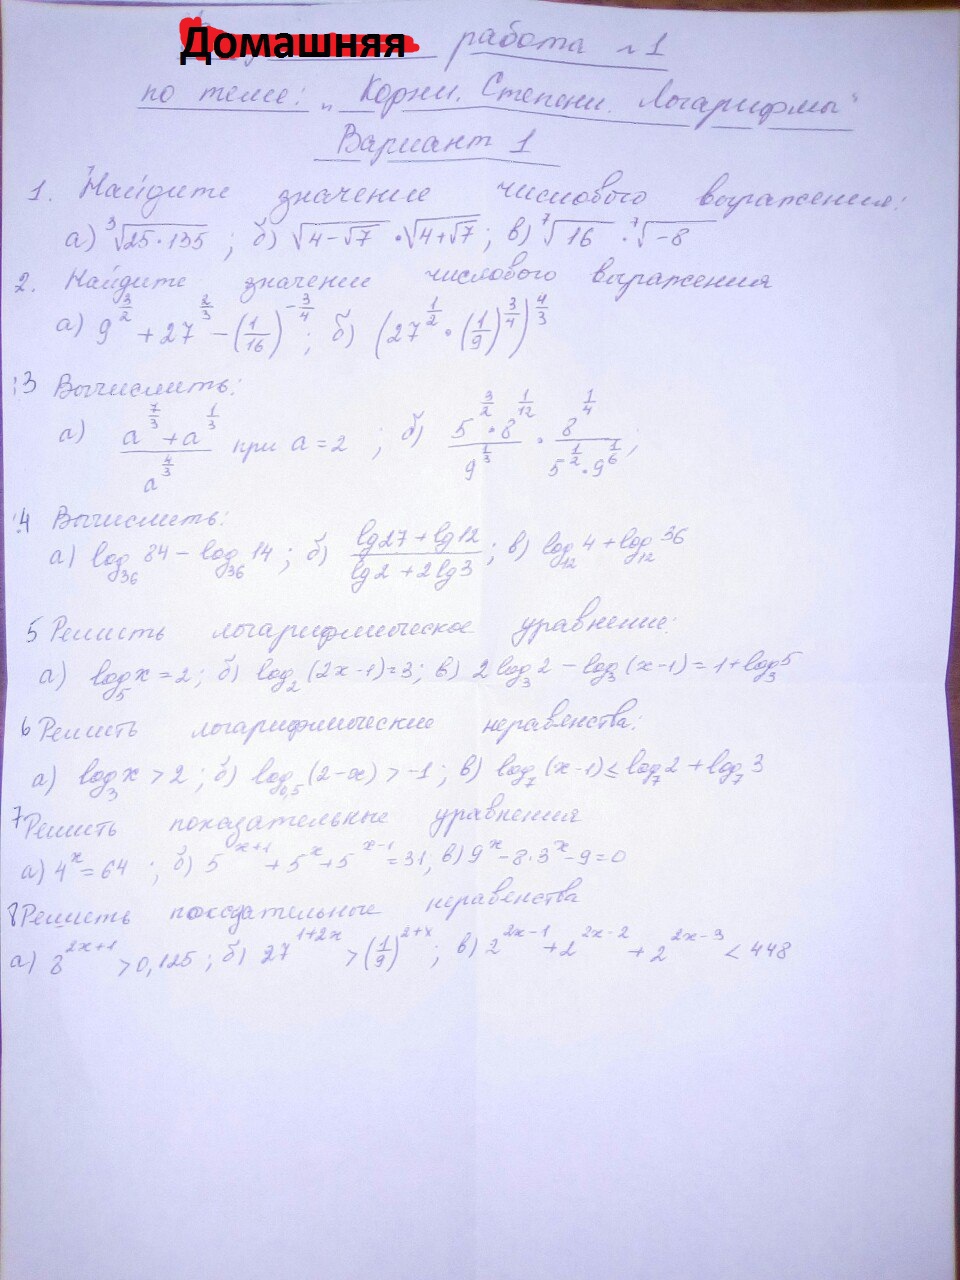 Домашняя работа №1
по теме: „Корни. Степени. Логарифмы"
Вариант 1
1. Найдите значение числового выражения:
а) ∛(25·135) ; б) √(4-√7) · √(4+√7) ; в) ⁷√16 · ⁷√-8
2. Найдите значение числового выражения
а) 9^(3/2) + 27^(2/3) - (1/16)^(-3/4) ; б) (27^(1/2) · (1/9)^(3/4))^(4/3)
3 Вычислить:
а) (a^(7/3) + a^(1/3))/a^(4/3) при a = 2 ; б) (5^(3/2) · 8^(1/12))/9^(1/3) · 8^(1/4)/(5^(1/2) · 9^(1/6)) ;
4 Вычислить:
а) log₃₆ 84 - log₃₆ 14 ; б) (lg27 + lg12)/(lg2 + 2lg3) ; в) log₁₂ 4 + log₁₂ 36
5 Решить логарифмическое уравнение:
а) log₅ x = 2 ; б) log₂ (2x-1) = 3 ; в) 2 log₃ 2 - log₃ (x-1) = 1 + log₃ 5
6 Решить логарифмические неравенства:
а) log₃ x > 2 ; б) log₀,₅ (2-x) > -1 ; в) log₇ (x-1) ≤ log₇ 2 + log₇ 3
7 Решить показательные уравнения
а) 4^x = 64 ; б) 5^(x+1) + 5^x + 5^(x-1) = 31, в) 9^x - 8·3^x - 9 = 0
8 Решить показательные неравенства
а) 8^(2x+1) > 0,125 ; б) 27^(1+2x) > (1/9)^(2+x) ; в) 2^(2x-1) + 2^(2x-2) + 2^(2x-3) < 448